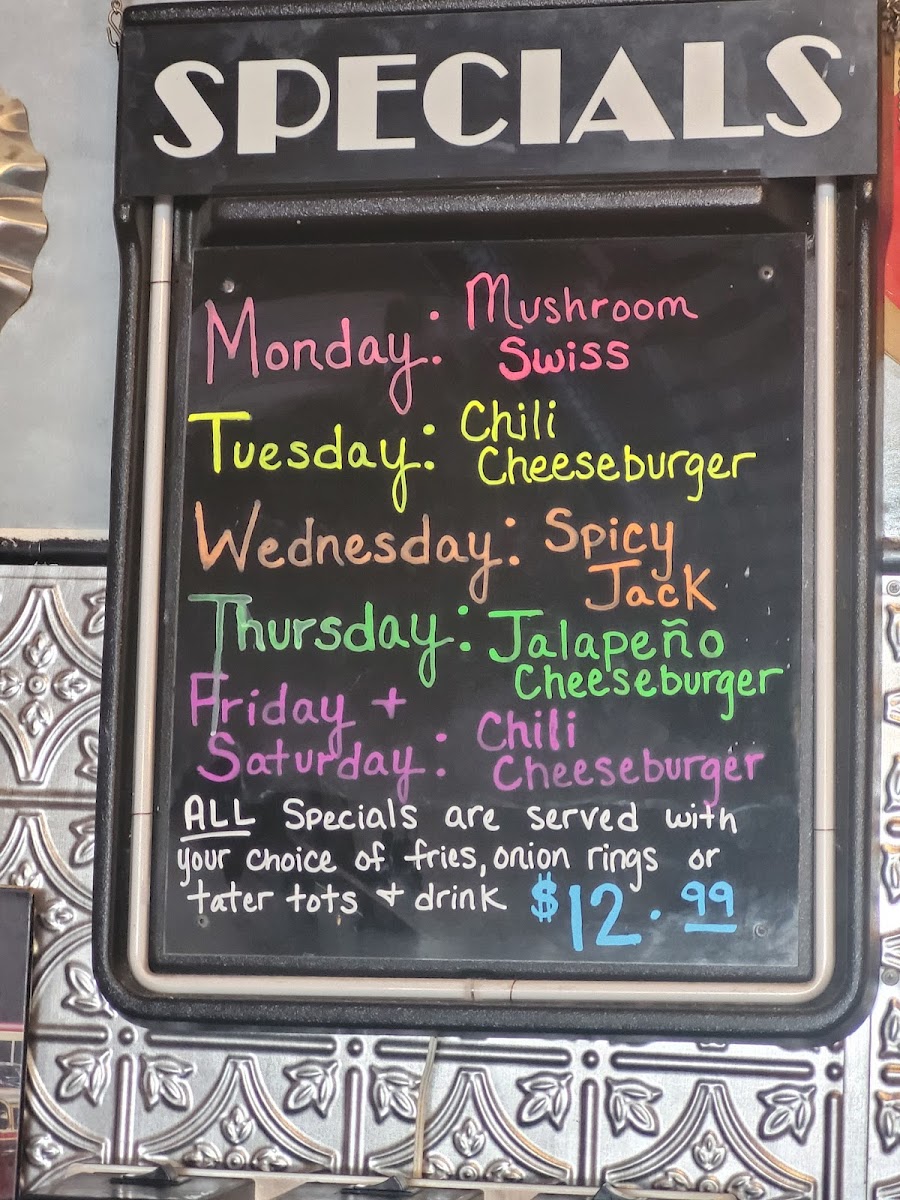 SPECIALS
Monday: Mushroom
Swiss
Tuesday: Chili
Cheeseburger
Wednesday: Spicy
Jack
Thursday: Jalapeño
Cheeseburger
Friday +
Saturday: Chili
Cheeseburger
ALL Specials are served with
your choice of fries, onion rings or
tater tots + drink $12.99